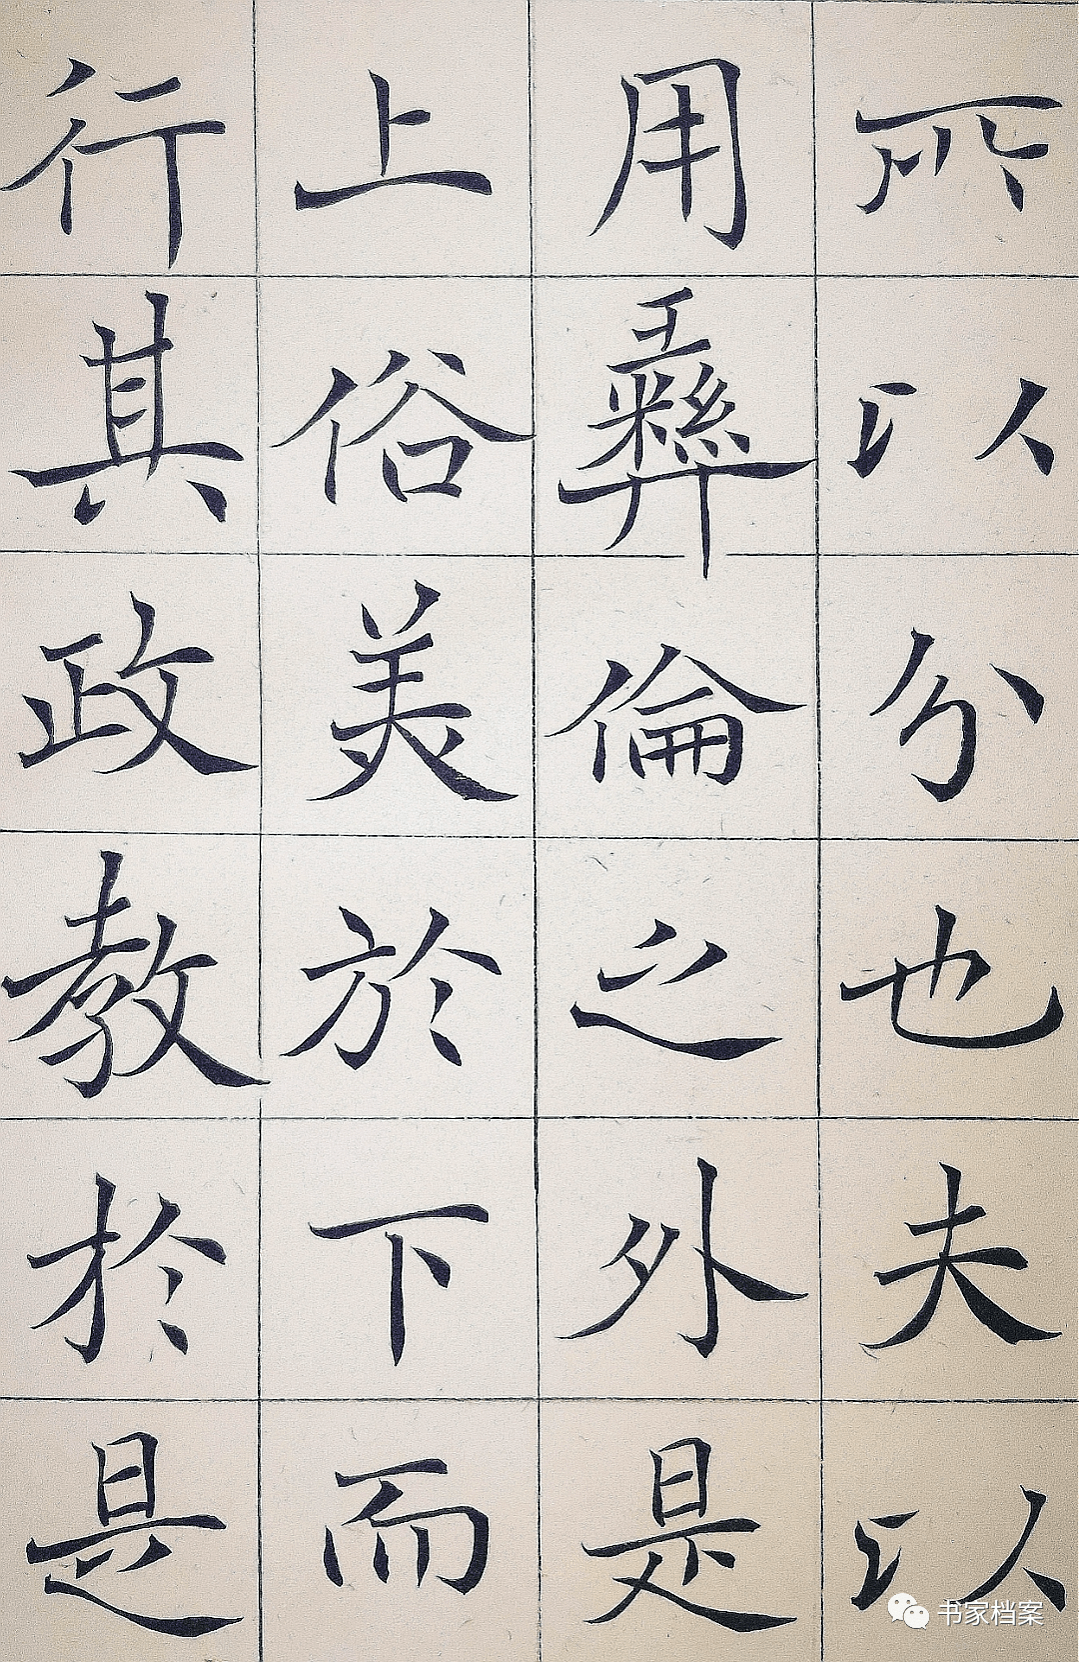 所以分也夫以
用彝倫之外是
上俗美於下而
行其政教於是
书家档案